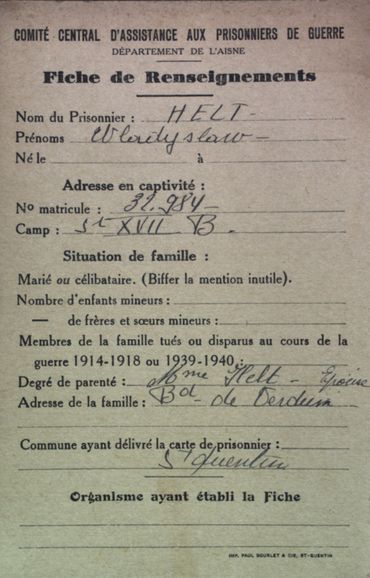 COMITÉ CENTRAL D'ASSISTANCE AUX PRISONNIERS DE GUERRE
DÉPARTEMENT DE L'AISNE
Fiche de Renseignements
Nom du Prisonnier : HELT -
Prénoms Wladyslaw -
Né le à
Adresse en captivité :
Nº matricule : 32.984
Camp : St XVII B.
Situation de famille :
Marié ou célibataire. (Biffer la mention inutile).
Nombre d'enfants mineurs :
— de frères et sœurs mineurs :
Membres de la famille tués ou disparus au cours de la
guerre 1914-1918 ou 1939-1940 :
Degré de parenté : Mme Helt -
Adresse de la famille : Bd de Verdun -
Commune ayant délivré la carte de prisonnier :
St Quentin
Organisme ayant établi la Fiche
IMP. PAUL BOURLET & CIE, ST-QUENTIN